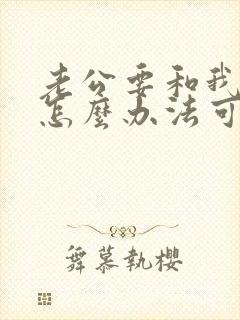 老公要和我
怎麼办法可
舞慕執櫻